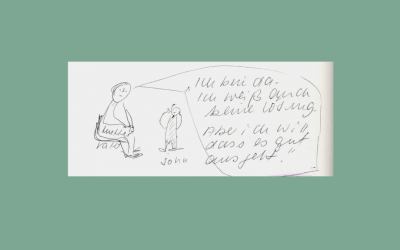 Ich bin da.
Ich weiß auch
keine Lösung.
Aber ich will,
dass es gut
ausgeht."
Vater
Sohn